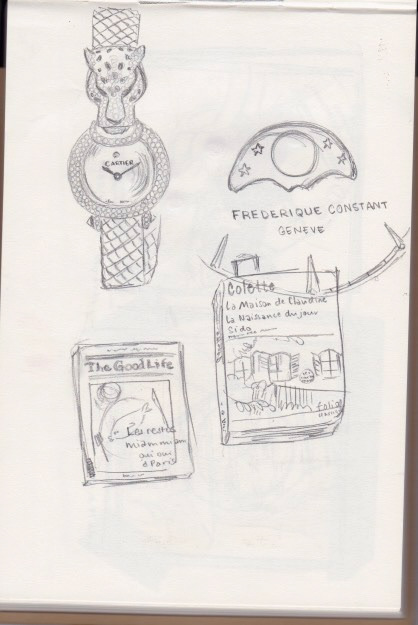 CARTIER
FREDERIQUE CONSTANT
GENEVE
Colette
La Maison de Claudine
La Naissance du jour
Sido
folio
The Good Life
Les restos
miammiam
qui ou
à Paris